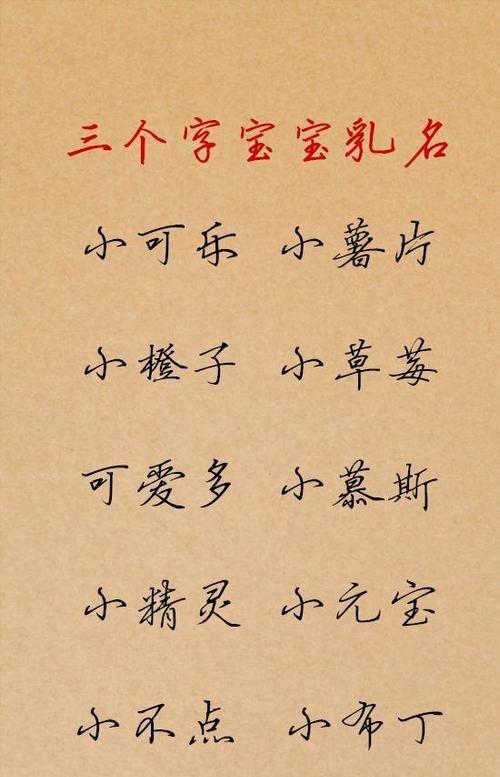 三个字宝宝乳名
小可乐 小薯片
小橙子 小草莓
可爱多 小慕斯
小精灵 小元宝
小不点 小布丁